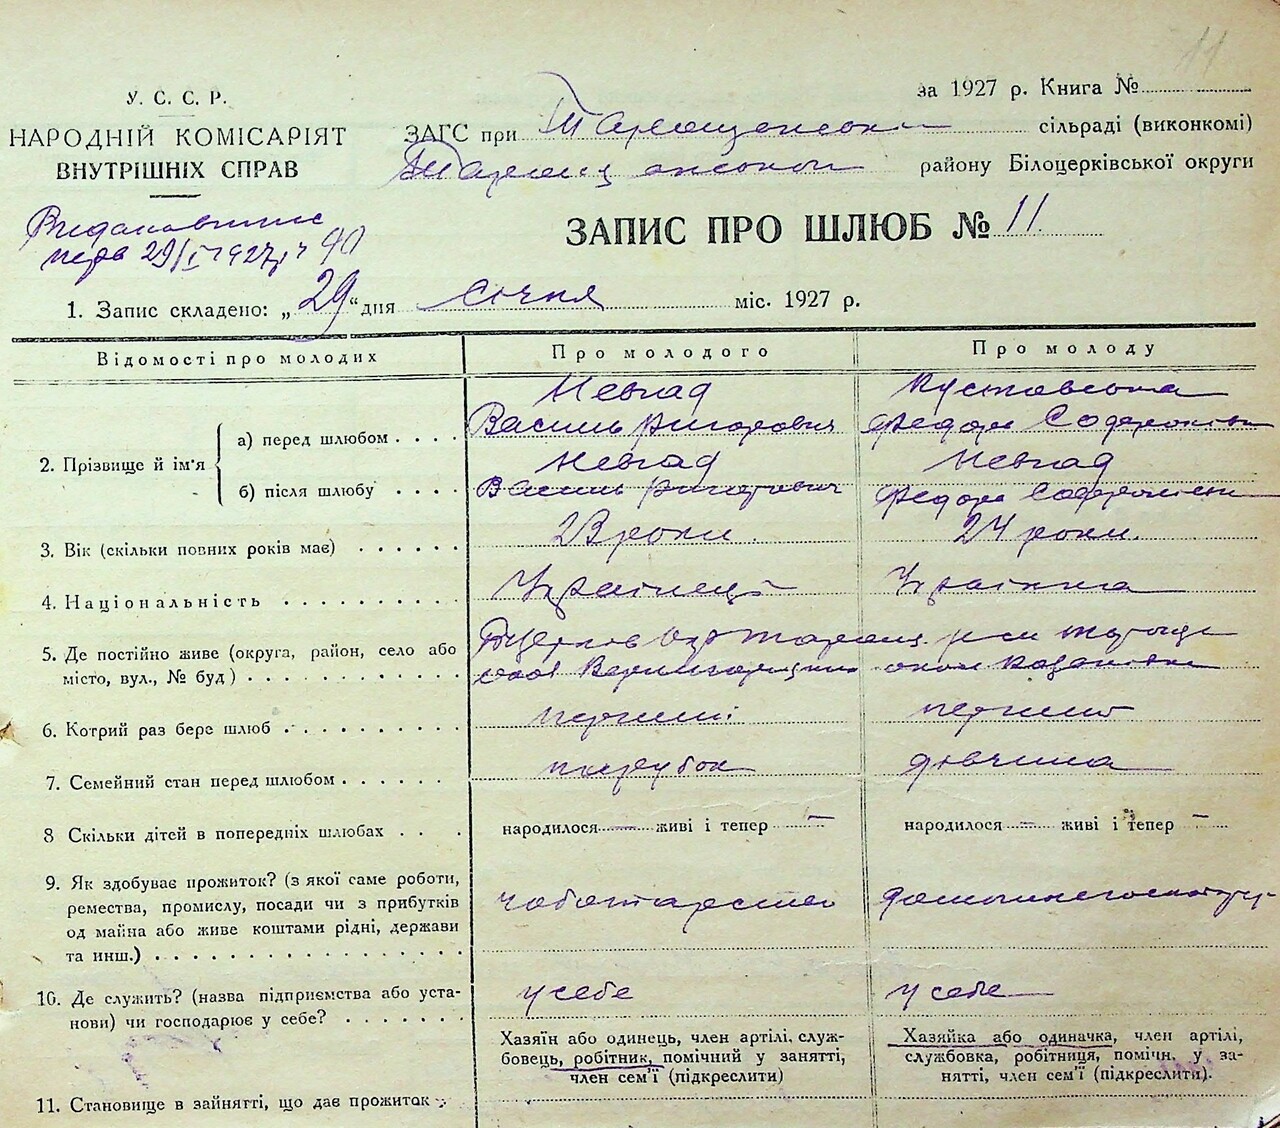 11
У. С. С. Р.
НАРОДНІЙ КОМІСАРІЯТ
ВНУТРІШНІХ СПРАВ
за 1927 р. Книга №
ЗАГС при Таращанськ сільраді (виконкомі)
Таращанської району Білоцерківської округи
29/I 1927 р 90
ЗАПИС ПРО ШЛЮБ № 11.
1. Запис складено: „29“ дня Січня міс. 1927 р.
Відомості про молодих
Про молодого
Про молоду
2. Прізвище й ім'я
а) перед шлюбом
Невгад
Василь Григорович
Кустовська
Федора
б) після шлюбу
Невгад
Василь Григорович
Невгад
Федора
3. Вік (скільки повних років має)
23 роки.
24 роки.
4. Національність
Українець
Українка
5. Де постійно живе (округа, район, село або
місто, вул., № буд)
6. Котрий раз бере шлюб
перший
перший
7. Семейний стан перед шлюбом
парубок
дівчина
8 Скільки дітей в попередніх шлюбах
народилося — живі і тепер —
народилося — живі і тепер —
9. Як здобуває прожиток? (з якої саме роботи,
ремества, промислу, посади чи з прибутків
од майна або живе коштами рідні, держави
та инш.)
чоботарство
10. Де служить? (назва підприємства або уста-
нови) чи господарює у себе?
у себе
у себе
Хазяїн або одинець, член артілі, служ-
бовець, робітник, помічний у занятті,
член сем'ї (підкреслити)
Хазяйка або одиначка, член артілі,
службовка, робітниця, помічн. у за-
нятті, член сем'ї (підкреслити).
11. Становище в зайнятті, що дає прожиток